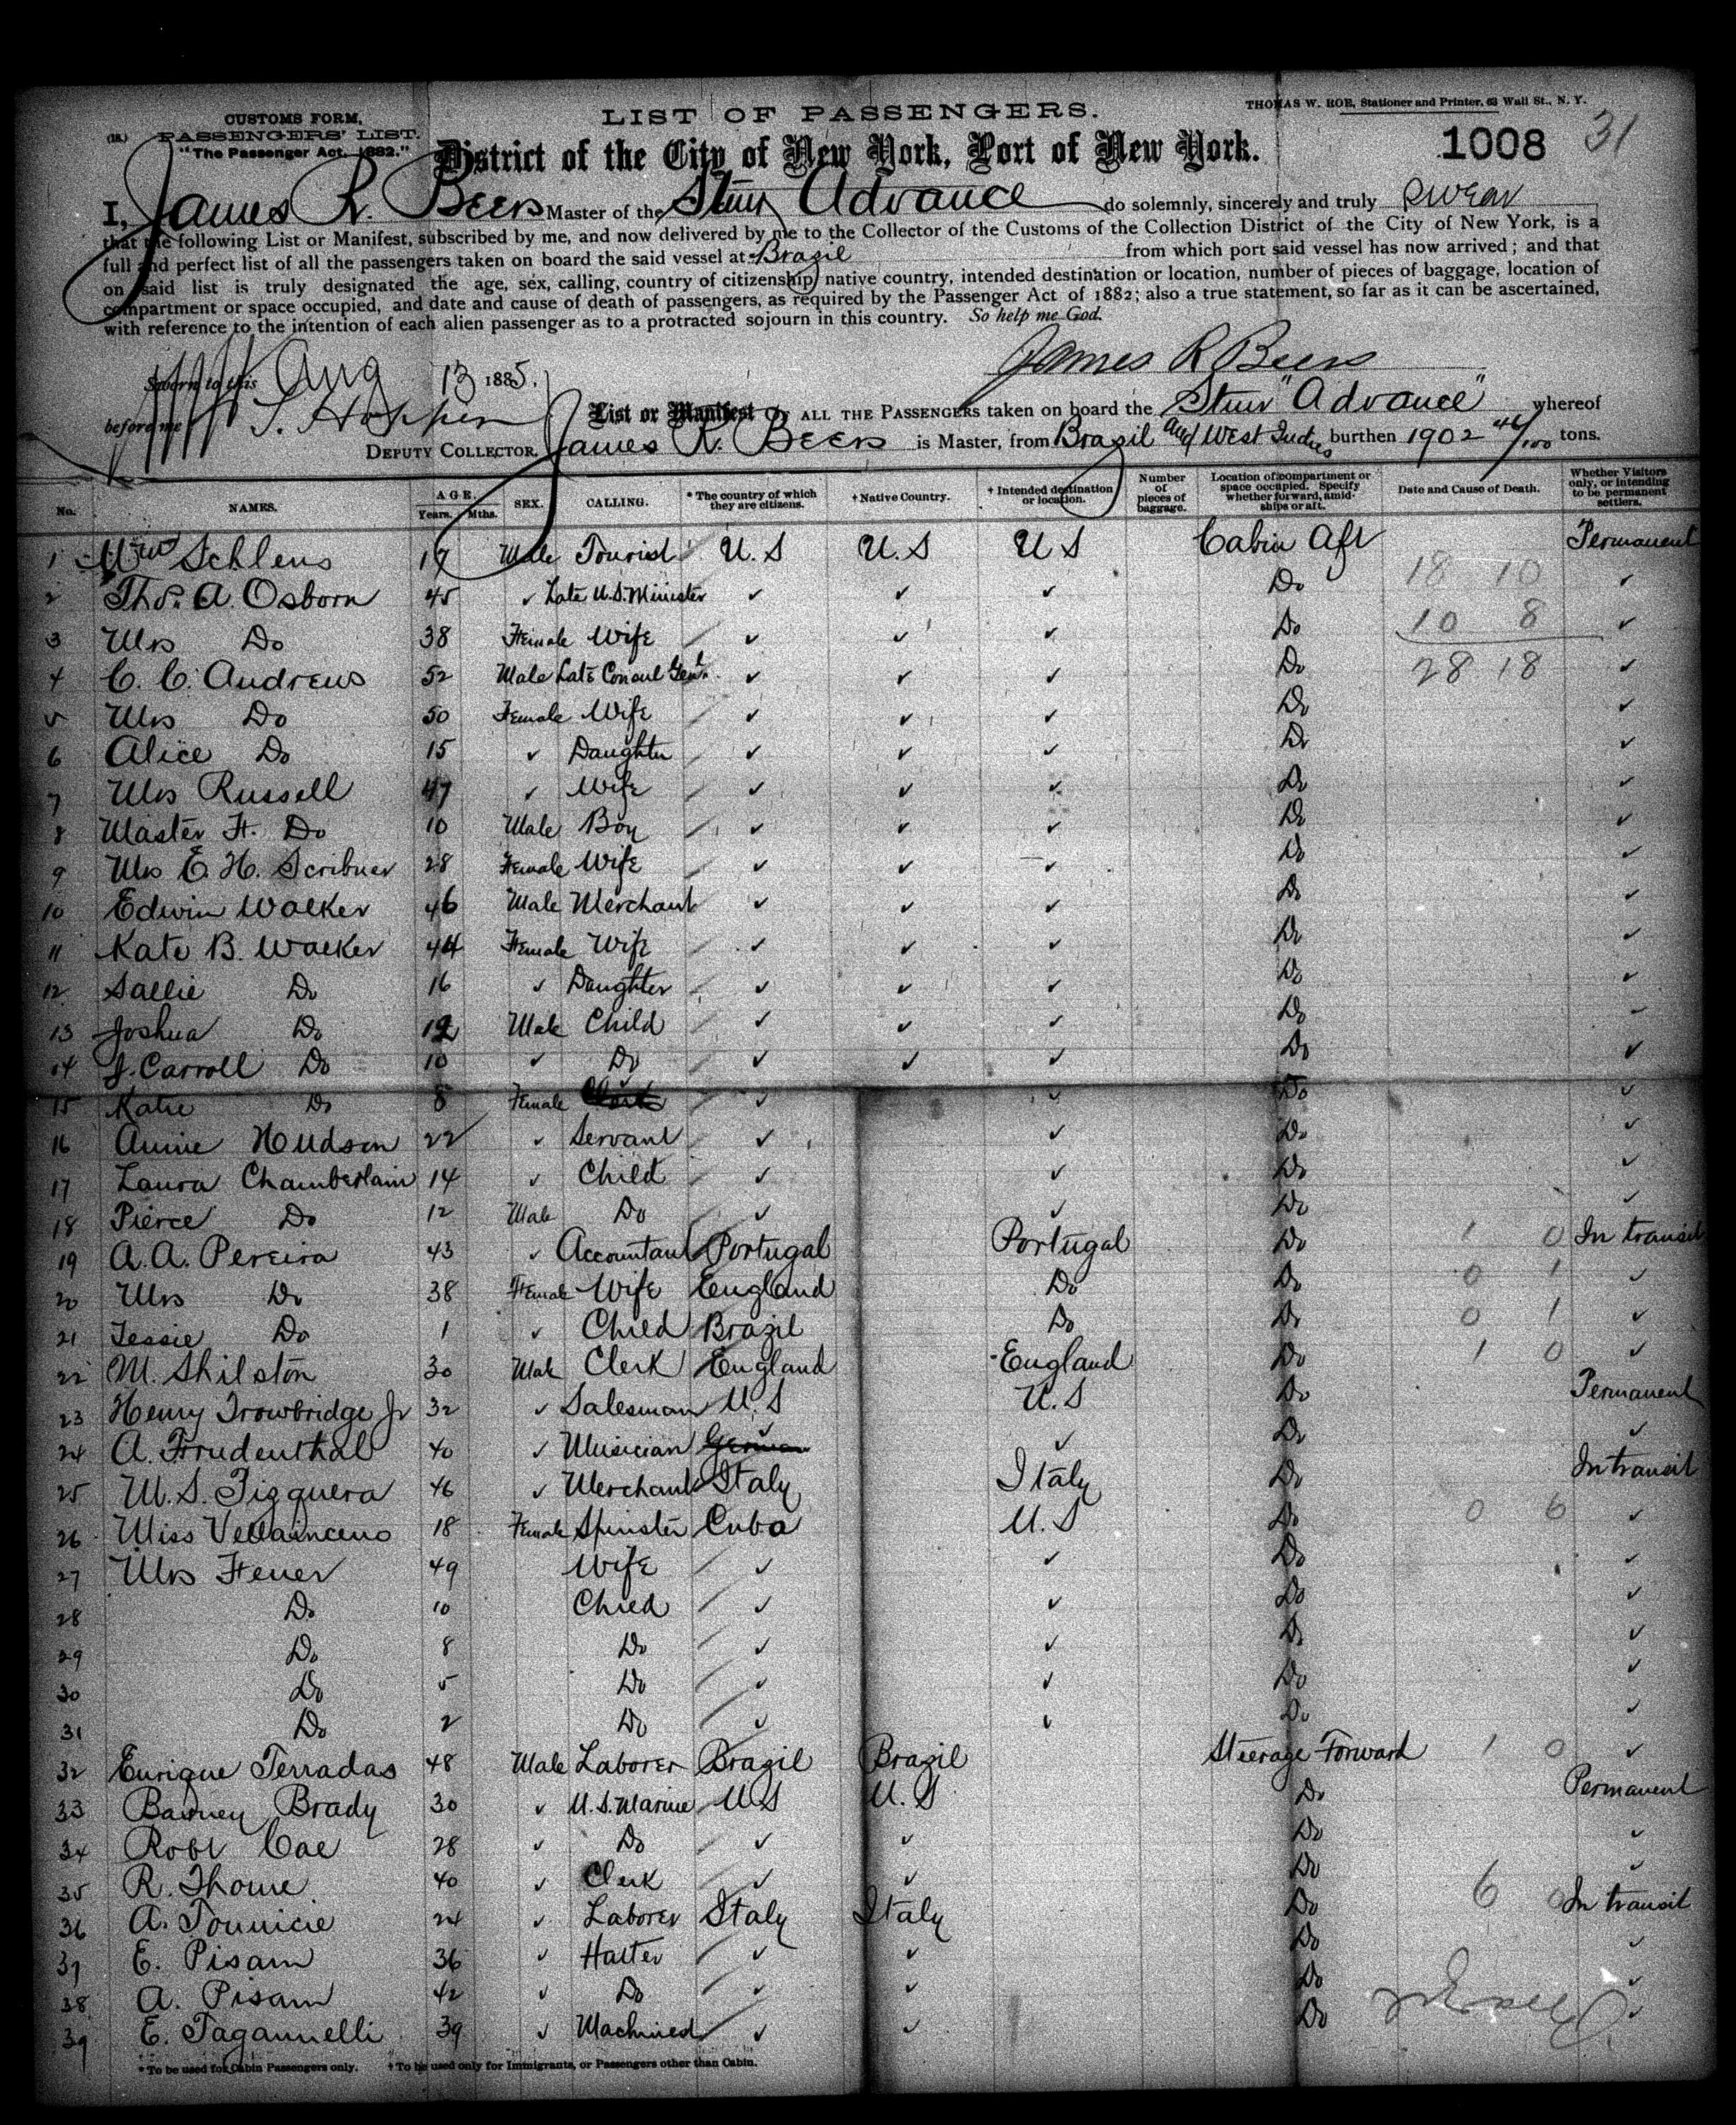 CUSTOMS FORM,
(18.) PASSENGERS' LIST.
"The Passenger Act, 1882."
LIST OF PASSENGERS.
THOMAS W. ROE, Stationer and Printer, 63 Wall St., N. Y.
District of the City of New York, Port of New York.
1008 31
I, James R. Beers Master of the Stmr Advance do solemnly, sincerely and truly swear
that the following List or Manifest, subscribed by me, and now delivered by me to the Collector of the Customs of the Collection District of the City of New York, is a
full and perfect list of all the passengers taken on board the said vessel at Brazil from which port said vessel has now arrived; and that
on said list is truly designated the age, sex, calling, country of citizenship, native country, intended destination or location, number of pieces of baggage, location of
compartment or space occupied, and date and cause of death of passengers, as required by the Passenger Act of 1882; also a true statement, so far as it can be ascertained,
with reference to the intention of each alien passenger as to a protracted sojourn in this country. So help me God.
James R Beers
Sworn to this Aug 13 1885.
before me S. Hopper
DEPUTY COLLECTOR.
List or Manifest OF ALL THE PASSENGERS taken on board the Stmr "Advance" whereof
James R. Beers is Master, from Brazil and West Indies burthen 1902 46/100 tons.
No. NAMES. AGE. Years. Mths. SEX. CALLING. * The country of which they are citizens. † Native Country. † Intended destination or location. Number of pieces of baggage. Location of compartment or space occupied. Specify whether forward, amidships or aft. Date and Cause of Death. Whether Visitors only, or intending to be permanent settlers.
1 Wm Schlens 17 Male Tourist U. S U. S U S Cabin Aft Permanent
2 Thos. A. Osborn 45 ✓ Late U.S. Minister ✓ ✓ ✓ Do 18 10 ✓
3 Mrs Do 38 Female Wife ✓ ✓ ✓ Do 10 8 ✓
4 C. C. Andrews 52 Male Late Consul Genl. ✓ ✓ ✓ Do 28 18 ✓
5 Mrs Do 50 Female Wife ✓ ✓ ✓ Do ✓
6 Alice Do 15 ✓ Daughter ✓ ✓ ✓ Do ✓
7 Mrs Russell 47 ✓ Wife ✓ ✓ ✓ Do ✓
8 Master H. Do 10 Male Boy ✓ ✓ ✓ Do ✓
9 Mrs E. H. Scribner 28 Female Wife ✓ ✓ ✓ Do ✓
10 Edwin Walker 46 Male Merchant ✓ ✓ ✓ Do ✓
11 Kate B. Walker 44 Female Wife ✓ ✓ ✓ Do ✓
12 Sallie Do 16 ✓ Daughter ✓ ✓ ✓ Do ✓
13 Joshua Do 12 Male Child ✓ ✓ ✓ Do ✓
14 J. Carroll Do 10 ✓ Do ✓ ✓ ✓ Do ✓
15 Katie Do 8 Female ✓ ✓ Do ✓
16 Annie Hudson 22 ✓ Servant ✓ ✓ Do ✓
17 Laura Chamberlain 14 ✓ Child ✓ ✓ Do ✓
18 Pierce Do 12 Male Do ✓ ✓ Do ✓
19 A. A. Pereira 43 ✓ Accountant Portugal Portugal Do 1 0 In transit
20 Mrs Do 38 Female Wife England Do Do 0 1 ✓
21 Jessie Do 1 ✓ Child Brazil Do Do 0 1 ✓
22 M. Shilston 30 Male Clerk England England Do 1 0 ✓
23 Henry Trowbridge Jr 32 ✓ Salesman U. S U. S Do Permanent
24 A. Frudenthal 40 ✓ Musician German ✓ ✓ Do ✓
25 M. S. Figquera 46 ✓ Merchant Italy Italy Do In transit
26 Miss 18 Female Spinster Cuba U. S Do 0 6 ✓
27 Mrs Feuer 49 Wife ✓ ✓ Do ✓
28 Do 10 Child ✓ ✓ Do ✓
29 Do 8 Do ✓ ✓ Do ✓
30 Do 5 Do ✓ ✓ Do ✓
31 Do 2 Do ✓ ✓ Do ✓
32 Enrique Terradas 48 Male Laborer Brazil Brazil Steerage Forward 1 0 ✓
33 Barney Brady 30 ✓ U. S. Marine U S U. S Do Permanent
34 Robt Coe 28 ✓ Do ✓ ✓ Do ✓
35 R. Thorne 40 ✓ Clerk ✓ ✓ Do ✓
36 A. 24 ✓ Laborer Italy Italy Do 6 0 In transit
37 E. Pisani 36 ✓ Hatter ✓ ✓ Do ✓
38 A. Pisani 42 ✓ Do ✓ ✓ Do ✓
39 E. Tagannelli 39 ✓ Machinest ✓ ✓ Do ✓
* To be used for Cabin Passengers only. † To be used only for Immigrants, or Passengers other than Cabin.